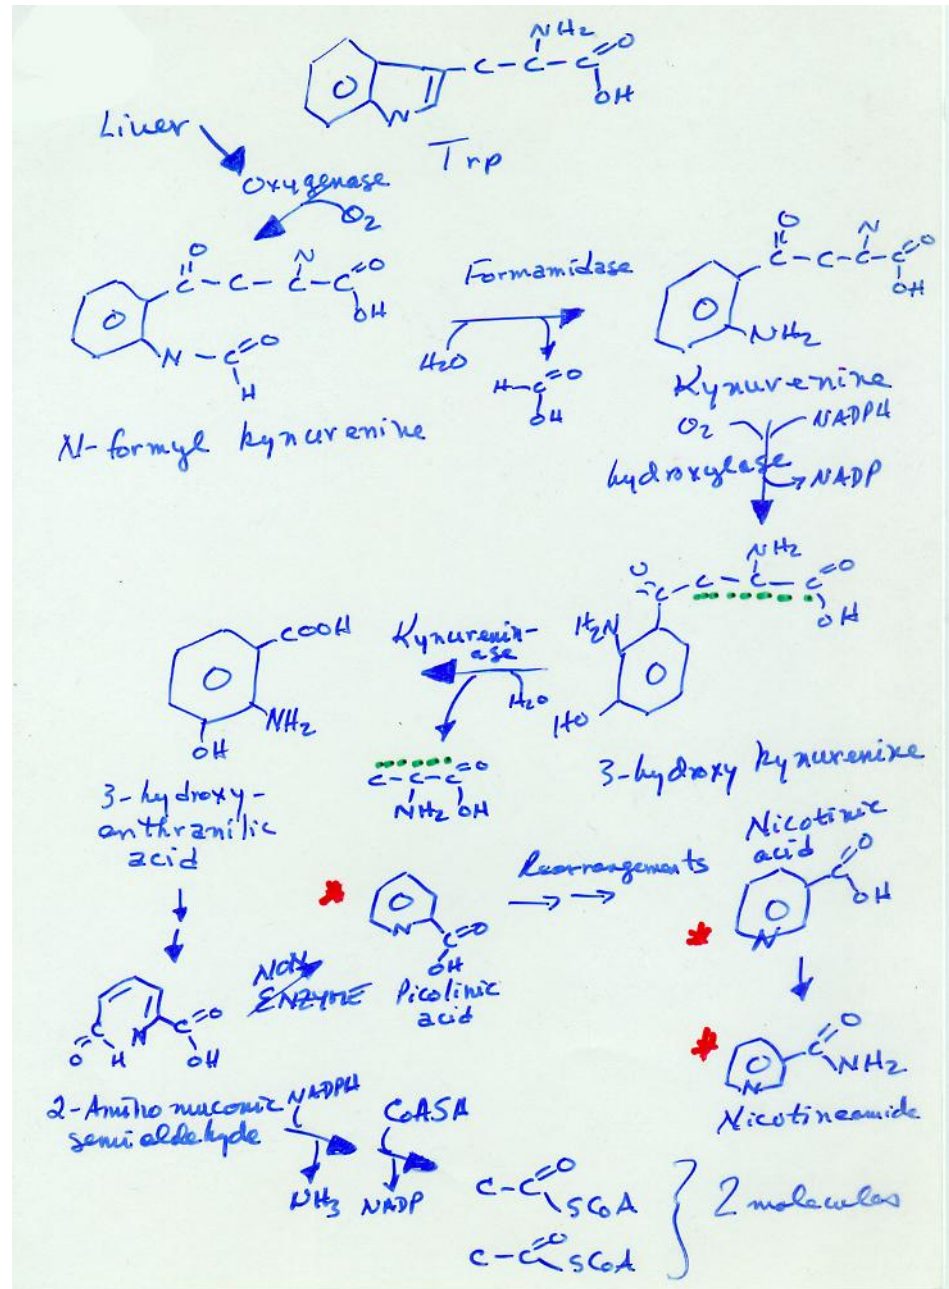 NH2
C - C - C = O
OH
N
Liver
Trp
Oxygenase
O2
O
N
C - C - C - C = O
OH
N - C = O
H
N-formyl kynurenine
Formamidase
H2O
H-C=O
OH
O
N
C - C - C - C = O
OH
NH2
Kynurenine
O2
NADPH
hydroxylase
NADP
NH2
O
C - C - C - C = O
OH
H2N
HO
3-hydroxy kynurenine
Kynurenin-
ase
H2O
COOH
NH2
OH
3-hydroxy-
anthranilic
acid
C-C-C=O
NH2 OH
Rearrangements
Nicotinic
acid
C=O
OH
N
N
C=O
OH
Picolinic
acid
NON
ENZYME
O=C H N C=O
OH
2-Amino muconic
semialdehyde
NADPH
NH3
CoASH
NADP
C=O
NH2
N
Nicotineamide
C-C=O
SCoA
C-C=O
SCoA
2 molecules